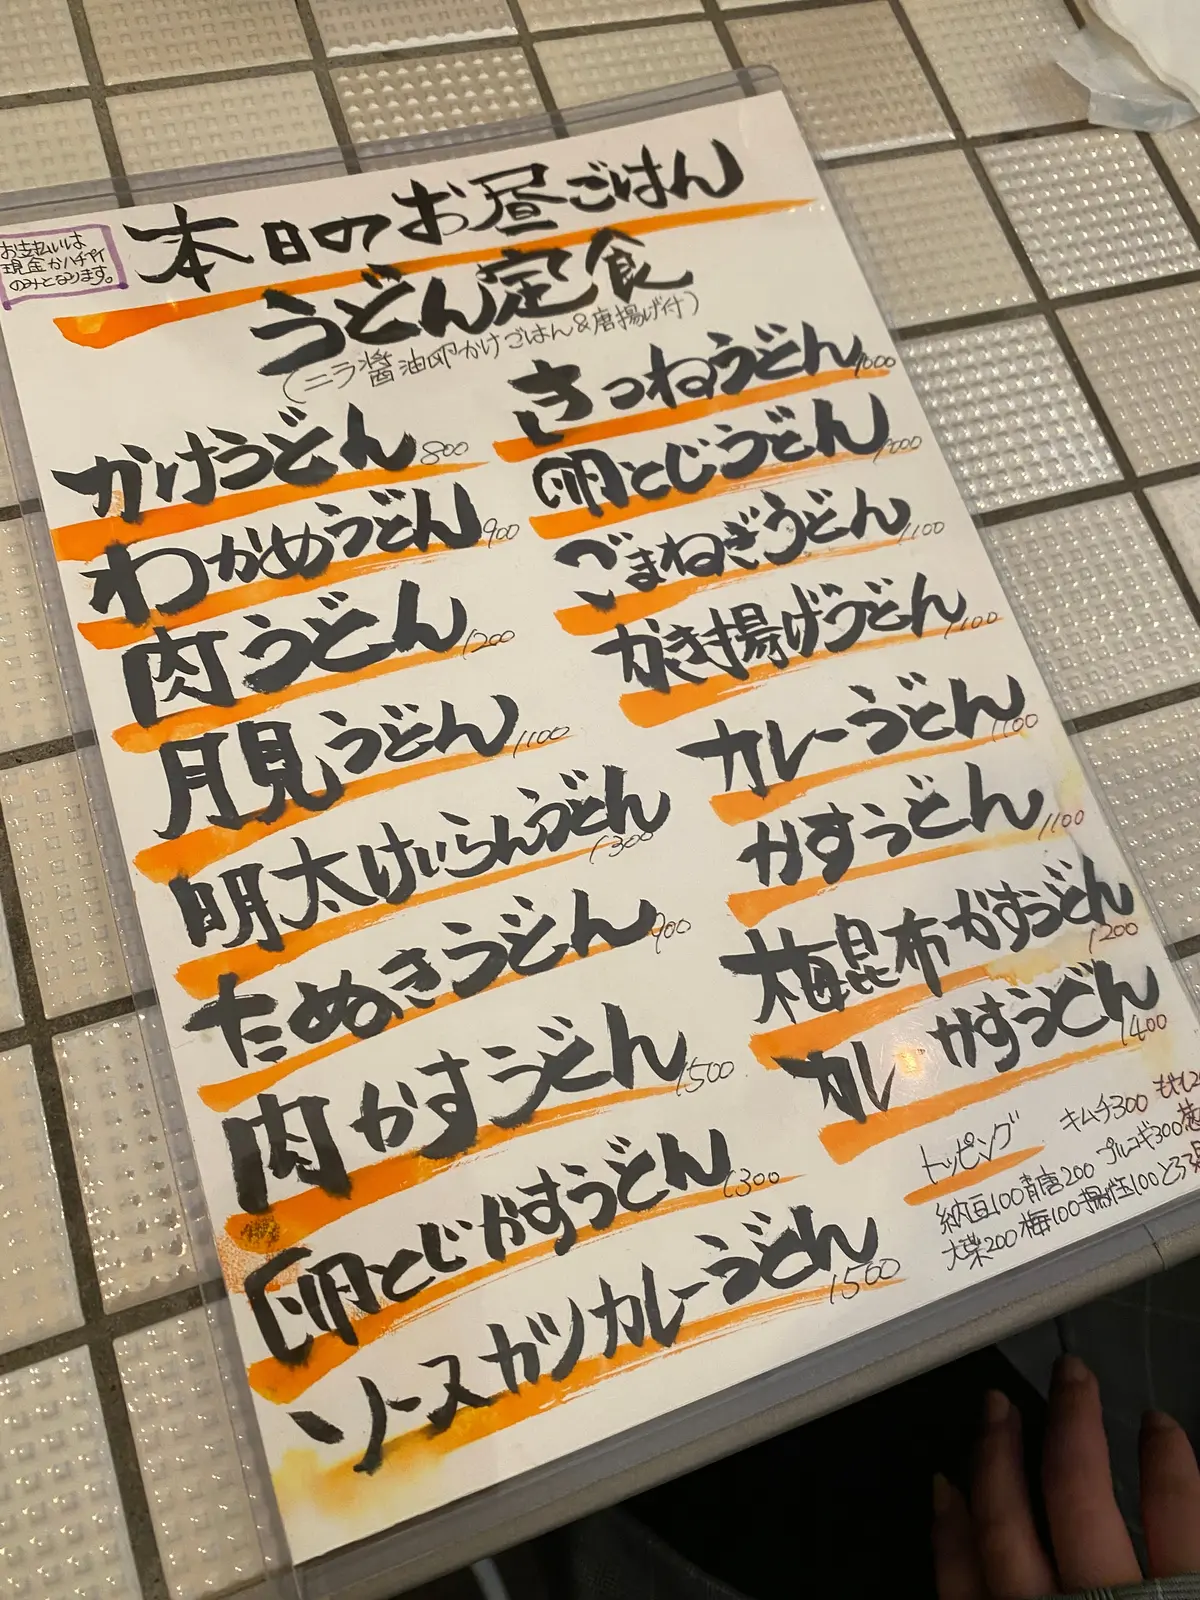 お支払いは
現金かハチペイ
のみとなります。
本日のお昼ごはん
うどん定食
(ニラ醤油卵かけごはん&唐揚げ付)
かけうどん 800
わかめうどん 900
肉うどん 1200
月見うどん 1100
明太けいらんうどん 1300
たぬきうどん 900
肉かすうどん 1500
卵とじかすうどん 1300
ソースカツカレーうどん 1500
きつねうどん 1000
卵とじうどん 1000
ごまねぎうどん 1100
かき揚げうどん 1100
カレーうどん 1100
かすうどん 1100
梅昆布かすうどん 1200
カレーかすうどん 1400
トッピング
キムチ300 もやし
納豆100 青唐200 プルコギ300
大葉200 梅100 揚げ玉100